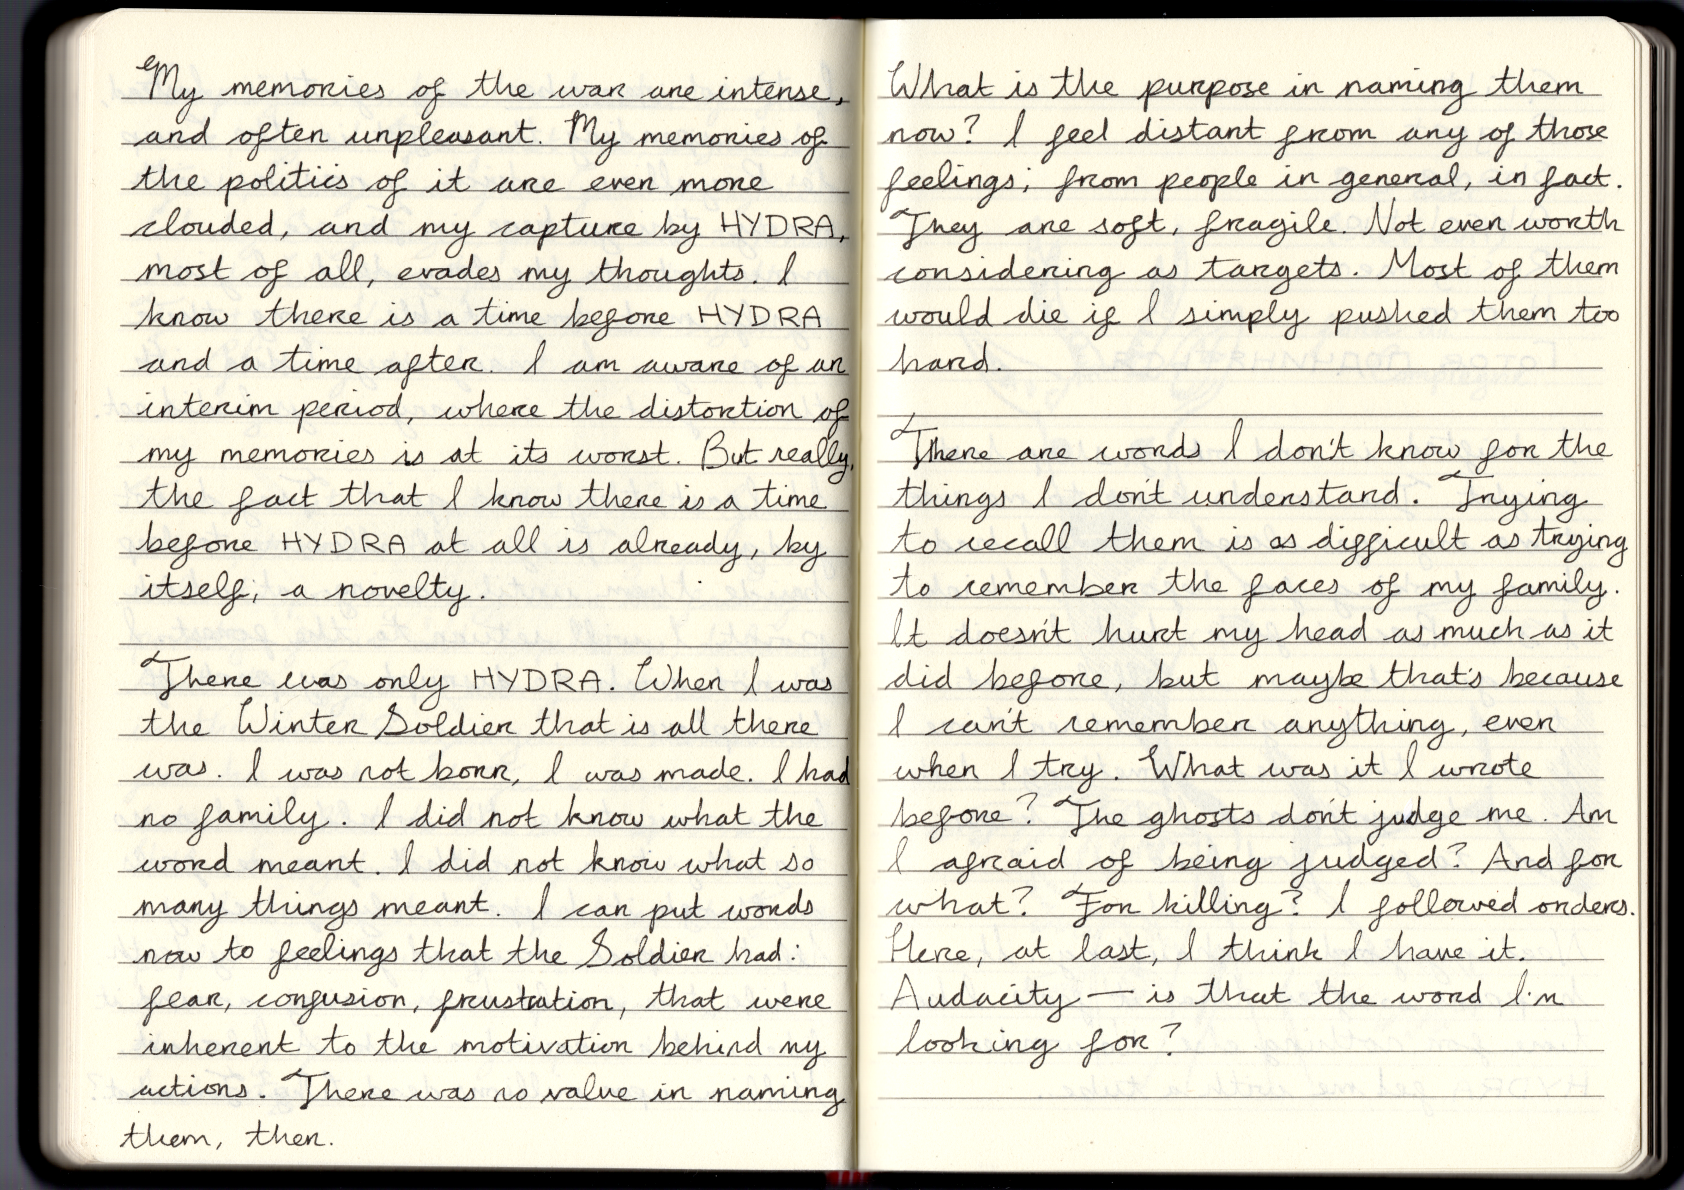 My memories of the war are intense,
and often unpleasant. My memories of
the politics of it are even more
clouded, and my capture by HYDRA,
most of all, evades my thoughts. I
know there is a time before HYDRA
and a time after. I am aware of an
interim period, where the distortion of
my memories is at its worst. But really,
the fact that I know there is a time
before HYDRA at all is already, by
itself, a novelty.
There was only HYDRA. When I was
the Winter Soldier that is all there
was. I was not born, I was made. I had
no family. I did not know what the
word meant. I did not know what so
many things meant. I can put words
now to feelings that the Soldier had:
fear, confusion, frustration, that were
inherent to the motivation behind my
actions. There was no value in naming
them, then.
What is the purpose in naming them
now? I feel distant from any of those
feelings; from people in general, in fact.
They are soft, fragile. Not even worth
considering as targets. Most of them
would die if I simply pushed them too
hard.
There are words I don't know for the
things I don't understand. Trying
to recall them is as difficult as trying
to remember the faces of my family.
It doesn't hurt my head as much as it
did before, but maybe that's because
I can't remember anything, even
when I try. What was it I wrote
before? The ghosts don't judge me. Am
I afraid of being judged? And for
what? For killing? I followed orders.
Here, at last, I think I have it.
Audacity — is that the word I'm
looking for?